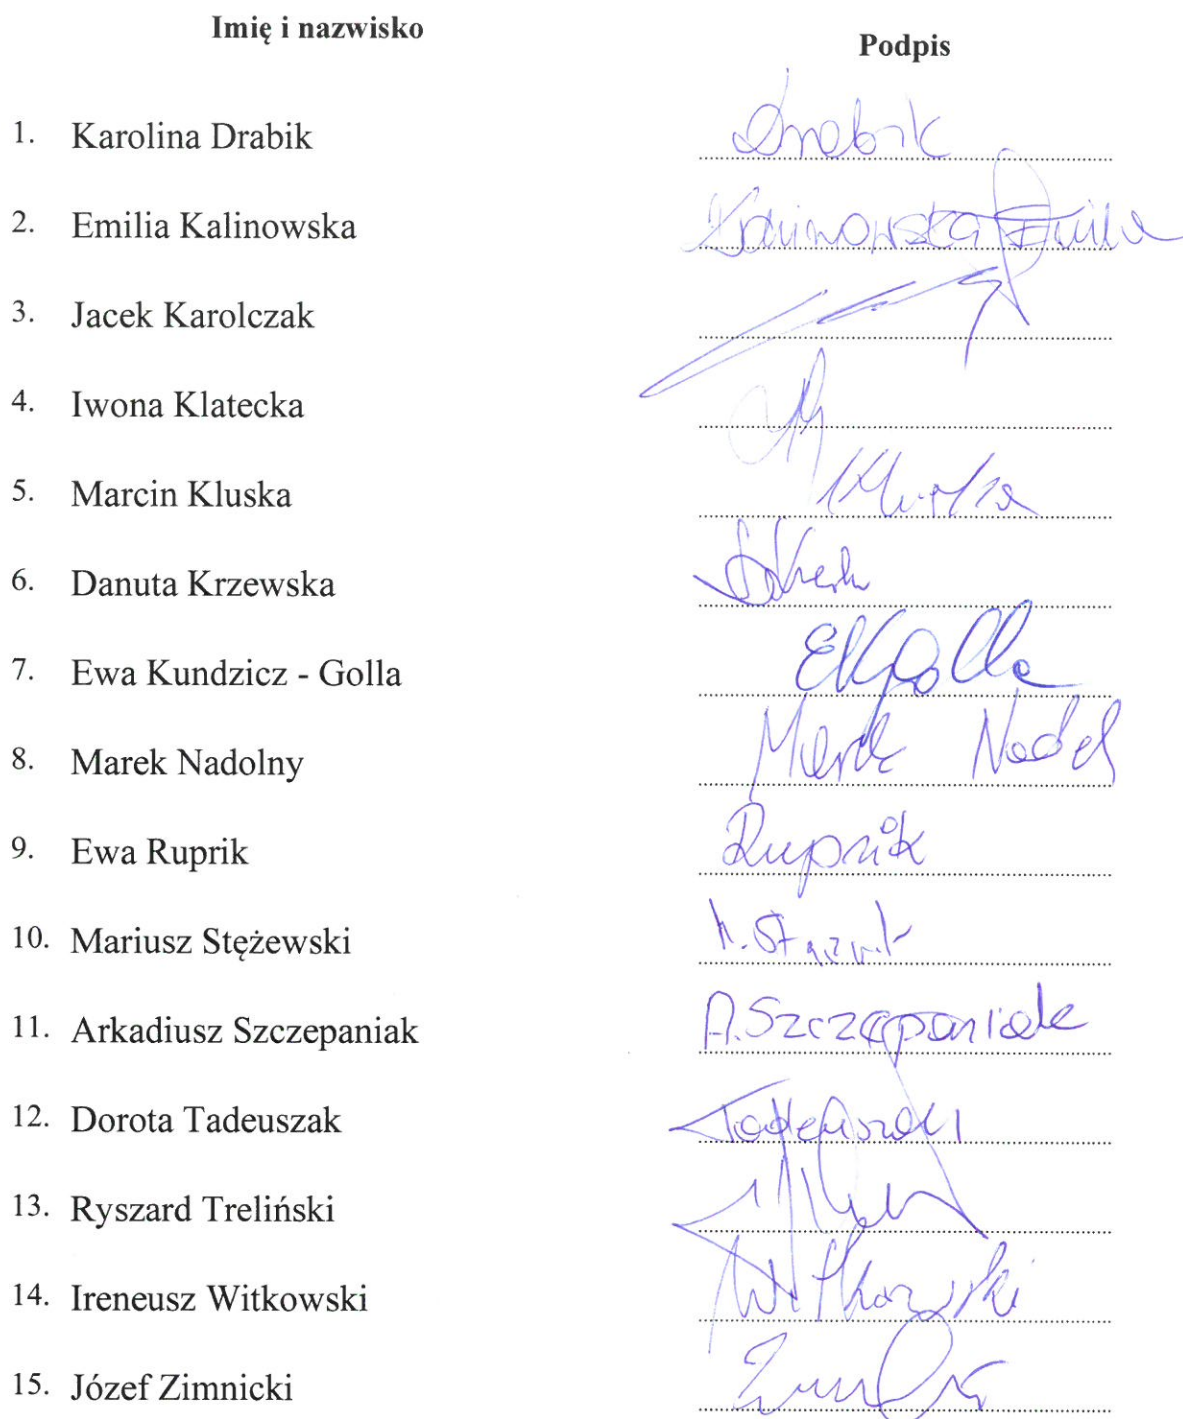 Imię i nazwisko
Podpis
1. Karolina Drabik Drabik
2. Emilia Kalinowska Kalinowska Emilia
3. Jacek Karolczak
4. Iwona Klatecka
5. Marcin Kluska Kluska
6. Danuta Krzewska
7. Ewa Kundzicz - Golla EKGolla
8. Marek Nadolny Marek
9. Ewa Ruprik Ruprik
10. Mariusz Stężewski
11. Arkadiusz Szczepaniak A. Szczepaniak
12. Dorota Tadeuszak Tadeuszak
13. Ryszard Treliński
14. Ireneusz Witkowski Witkowski
15. Józef Zimnicki